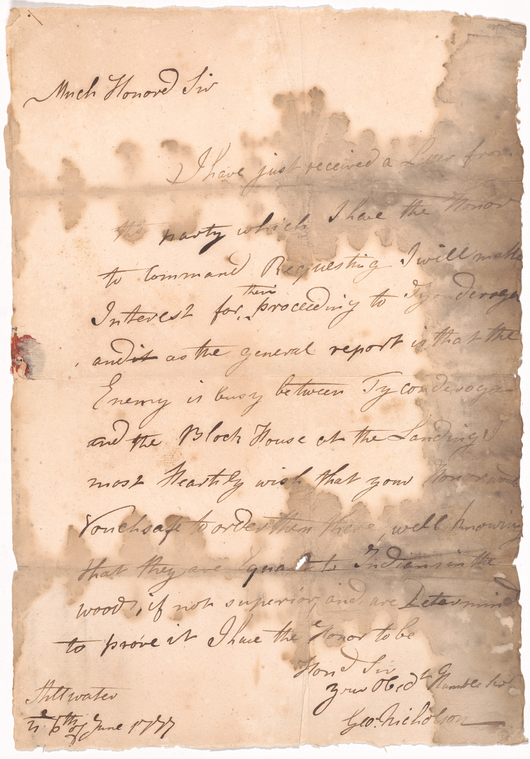 Much Honored Sir
I have just received a from
the party which I have the Honor
to Command Requesting I will make
Interest for their proceeding to Tyconderoga
and it as the general report is that the
Enemy is busy between Tyconderoga
and the Block House at the Landing I
most Heartily wish that your Honor
Vouchsafe to order them there, well knowing
that they are equal to Indians in the
woods, if not superior, and are Determined
to prove it I have the Honor to be
Hond Sir
your Obedt Humble
Geo. Nicholson
Stillwater
6th of June 1777